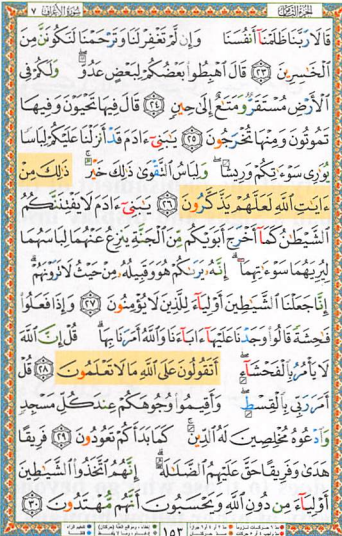 الجزء الثامن سورة الأعراف ٧
قَالَا رَبَّنَا ظَلَمْنَآ أَنفُسَنَا وَإِن لَّمْ تَغْفِرْ لَنَا وَتَرْحَمْنَا لَنَكُونَنَّ مِنَ
ٱلْخَٰسِرِينَ ٢٣ قَالَ ٱهْبِطُوا۟ بَعْضُكُمْ لِبَعْضٍ عَدُوٌّ ۖ وَلَكُمْ فِى
ٱلْأَرْضِ مُسْتَقَرٌّ وَمَتَٰعٌ إِلَىٰ حِينٍ ٢٤ قَالَ فِيهَا تَحْيَوْنَ وَفِيهَا
تَمُوتُونَ وَمِنْهَا تُخْرَجُونَ ٢٥ يَٰبَنِىٓ ءَادَمَ قَدْ أَنزَلْنَا عَلَيْكُمْ لِبَاسًا
يُوَٰرِى سَوْءَٰتِكُمْ وَرِيشًا ۖ وَلِبَاسُ ٱلتَّقْوَىٰ ذَٰلِكَ خَيْرٌ ۚ ذَٰلِكَ مِنْ
ءَايَٰتِ ٱللَّهِ لَعَلَّهُمْ يَذَّكَّرُونَ ٢٦ يَٰبَنِىٓ ءَادَمَ لَا يَفْتِنَنَّكُمُ
ٱلشَّيْطَٰنُ كَمَآ أَخْرَجَ أَبَوَيْكُم مِّنَ ٱلْجَنَّةِ يَنزِعُ عَنْهُمَا لِبَاسَهُمَا
لِيُرِيَهُمَا سَوْءَٰتِهِمَآ ۗ إِنَّهُۥ يَرَىٰكُمْ هُوَ وَقَبِيلُهُۥ مِنْ حَيْثُ لَا تَرَوْنَهُمْ ۗ
إِنَّا جَعَلْنَا ٱلشَّيَٰطِينَ أَوْلِيَآءَ لِلَّذِينَ لَا يُؤْمِنُونَ ٢٧ وَإِذَا فَعَلُوا۟
فَٰحِشَةً قَالُوا۟ وَجَدْنَا عَلَيْهَآ ءَابَآءَنَا وَٱللَّهُ أَمَرَنَا بِهَا ۗ قُلْ إِنَّ ٱللَّهَ
لَا يَأْمُرُ بِٱلْفَحْشَآءِ ۖ أَتَقُولُونَ عَلَى ٱللَّهِ مَا لَا تَعْلَمُونَ ٢٨ قُلْ
أَمَرَ رَبِّى بِٱلْقِسْطِ ۖ وَأَقِيمُوا۟ وُجُوهَكُمْ عِندَ كُلِّ مَسْجِدٍ
وَٱدْعُوهُ مُخْلِصِينَ لَهُ ٱلدِّينَ ۚ كَمَا بَدَأَكُمْ تَعُودُونَ ٢٩ فَرِيقًا
هَدَىٰ وَفَرِيقًا حَقَّ عَلَيْهِمُ ٱلضَّلَٰلَةُ ۗ إِنَّهُمُ ٱتَّخَذُوا۟ ٱلشَّيَٰطِينَ
أَوْلِيَآءَ مِن دُونِ ٱللَّهِ وَيَحْسَبُونَ أَنَّهُم مُّهْتَدُونَ ٣٠
١٥٣